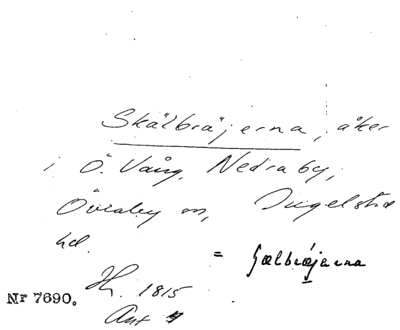 Skälbräjerna, åker
i Ö. Vång, Nedraby,
Övraby sn, Ingelstad
hd.
= Sælbræjerna
Hh. 1815
Nr 7690.